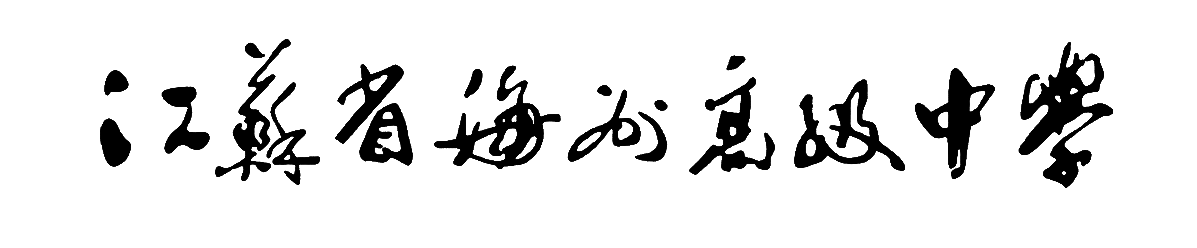 江蘇省海州高级中學